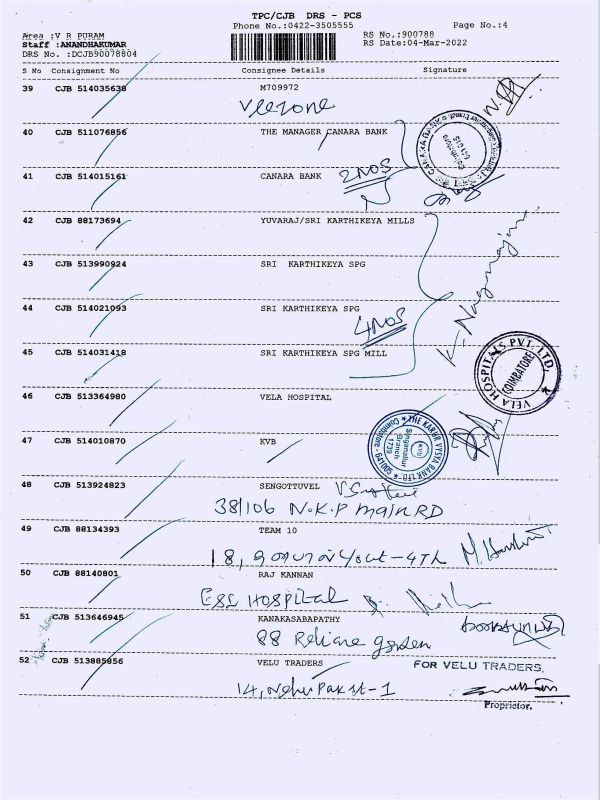 TPC/CJB DRS - PCS
Phone No.:0422-3505555 Page No.:4
Area :V R PURAM RS No.:900788
Staff :ANANDHAKUMAR RS Date:04-Mar-2022
DRS No. :DCJB90078804
S No Consignment No Consignee Details Signature
39 CJB 514035638 M709972
Veezone
40 CJB 511076856 THE MANAGER CANARA BANK
CANARA BANK
Coimbatore
641 015
41 CJB 514015161 CANARA BANK
2 NOS
42 CJB 88173694 YUVARAJ/SRI KARTHIKEYA MILLS
43 CJB 513990924 SRI KARTHIKEYA SPG
44 CJB 514021093 SRI KARTHIKEYA SPG
4 NOS
K. Nagarajan
45 CJB 514031418 SRI KARTHIKEYA SPG MILL
VELA HOSPITALS PVT. LTD,
(COIMBATORE)
46 CJB 513364980 VELA HOSPITAL
47 CJB 514010870 KVB
THE KARUR VYSYA BANK LTD.
KVB
Singanallur
Branch
1739
Coimbatore - 641005
48 CJB 513924823 SENGOTTUVEL
38/106 N.K.P main RD
49 CJB 88134393 TEAM 10
50 CJB 88140801 RAJ KANNAN
ESI HOSPITAL
51 CJB 513646945 KANAKASABAPATHY
88 Reliane garden
52 CJB 513885856 VELU TRADERS
FOR VELU TRADERS,
14, Nehru Park st-1
Proprietor.